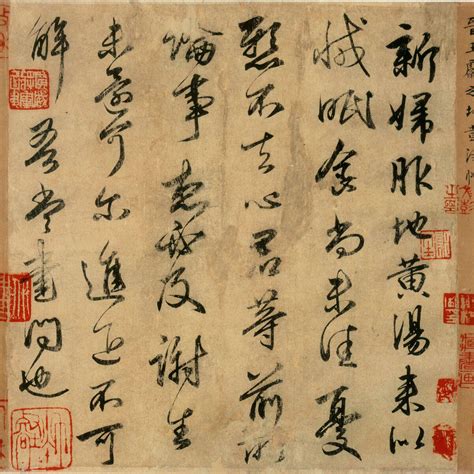 新婦服地黃湯來似
減眠食尚未佳憂
懸不去心君等前所
論事想必及謝生
未還可爾進退不可
解吾當書問也